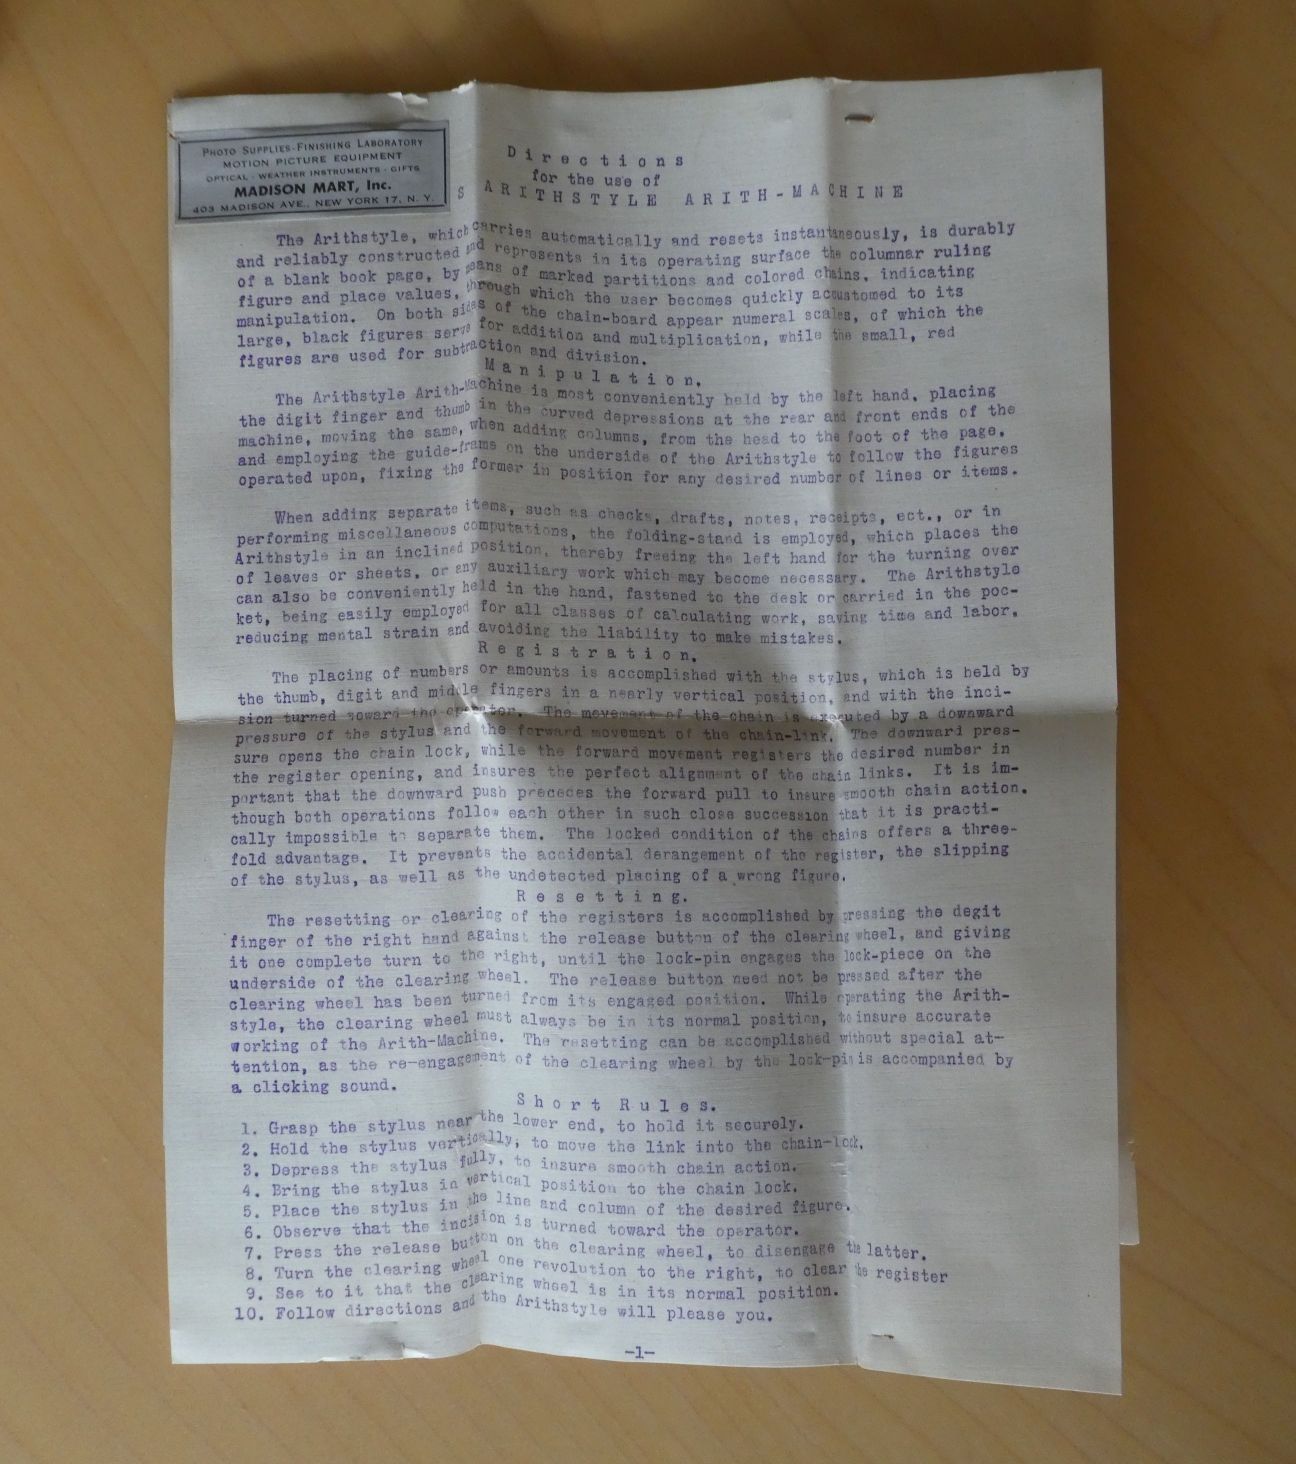 PHOTO SUPPLIES-FINISHING LABORATORY
MOTION PICTURE EQUIPMENT
OPTICAL - WEATHER INSTRUMENTS - GIFTS
MADISON MART, Inc.
403 MADISON AVE., NEW YORK 17, N. Y.
Directions
for the use of
S ARITHSTYLE ARITH-MACHINE
The Arithstyle, which carries automatically and resets instantaneously, is durably
and reliably constructed and represents in its operating surface the columnar ruling
of a blank book page, by means of marked partitions and colored chains, indicating
figure and place values, through which the user becomes quickly accustomed to its
manipulation. On both sides of the chain-board appear numeral scales, of which the
large, black figures serve for addition and multiplication, while the small, red
figures are used for subtraction and division.
Manipulation.
The Arithstyle Arith-Machine is most conveniently held by the left hand, placing
the digit finger and thumb in the curved depressions at the rear and front ends of the
machine, moving the same, when adding columns, from the head to the foot of the page,
and employing the guide-frame on the underside of the Arithstyle to follow the figures
operated upon, fixing the former in position for any desired number of lines or items.
When adding separate items, such as checks, drafts, notes, receipts, ect., or in
performing miscellaneous computations, the folding-stand is employed, which places the
Arithstyle in an inclined position, thereby freeing the left hand for the turning over
of leaves or sheets, or any auxiliary work which may become necessary. The Arithstyle
can also be conveniently held in the hand, fastened to the desk or carried in the poc-
ket, being easily employed for all classes of calculating work, saving time and labor,
reducing mental strain and avoiding the liability to make mistakes.
Registration.
The placing of numbers or amounts is accomplished with the stylus, which is held by
the thumb, digit and middle fingers in a nearly vertical position, and with the inci-
sion turned toward the operator. The movement of the chain is executed by a downward
pressure of the stylus and the forward movement of the chain-link. The downward pres-
sure opens the chain lock, while the forward movement registers the desired number in
the register opening, and insures the perfect alignment of the chain links. It is im-
portant that the downward push precedes the forward pull to insure smooth chain action,
though both operations follow each other in such close succession that it is practi-
cally impossible to separate them. The locked condition of the chains offers a three-
fold advantage. It prevents the accidental derangement of the register, the slipping
of the stylus, as well as the undetected placing of a wrong figure.
Resetting.
The resetting or clearing of the registers is accomplished by pressing the degit
finger of the right hand against the release button of the clearing wheel, and giving
it one complete turn to the right, until the lock-pin engages the lock-piece on the
underside of the clearing wheel. The release button need not be pressed after the
clearing wheel has been turned from its engaged position. While operating the Arith-
style, the clearing wheel must always be in its normal position, to insure accurate
working of the Arith-Machine. The resetting can be accomplished without special at-
tention, as the re-engagement of the clearing wheel by the lock-pin is accompanied by
a clicking sound.
Short Rules.
1. Grasp the stylus near the lower end, to hold it securely.
2. Hold the stylus vertically, to move the link into the chain-lock.
3. Depress the stylus fully, to insure smooth chain action.
4. Bring the stylus in vertical position to the chain lock.
5. Place the stylus in the line and column of the desired figure.
6. Observe that the incision is turned toward the operator.
7. Press the release button on the clearing wheel, to disengage the latter.
8. Turn the clearing wheel one revolution to the right, to clear the register
9. See to it that the clearing wheel is in its normal position.
10. Follow directions and the Arithstyle will please you.
-1-